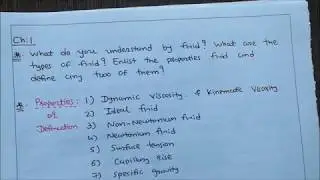 Ch:1
Q. What do you understand by fluid? What are the
types of fluid? Enlist the properties fluid and
define any two of them?
Properties 1) Dynamic Viscosity & Kinematic Viscosity
of 2) Ideal fluid
Defination 3) Non-Newtonium fluid
4) Newtonium fluid
5) Surface tension
6) Capillary Rise
7) Specific gravity